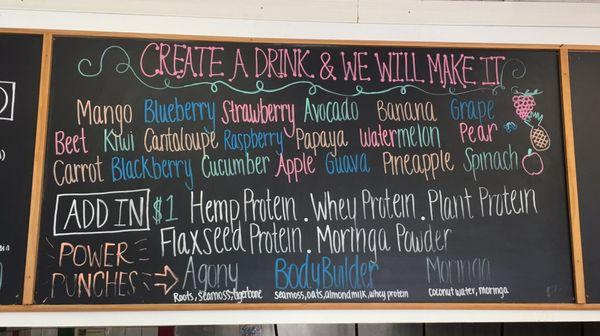 CREATE A DRINK & WE WILL MAKE IT
Mango Blueberry Strawberry Avocado Banana Grape
Beet Kiwi Cantaloupe Raspberry Papaya Watermelon Pear
Carrot Blackberry Cucumber Apple Guava Pineapple Spinach
ADD IN $1 Hemp Protein . Whey Protein . Plant Protein
Flaxseed Protein . Moringa Powder
POWER PUNCHES
Agony BodyBuilder Moringa
Roots, seamoss, tigerbone seamoss, oats, almondmilk, whey protein coconut water, moringa